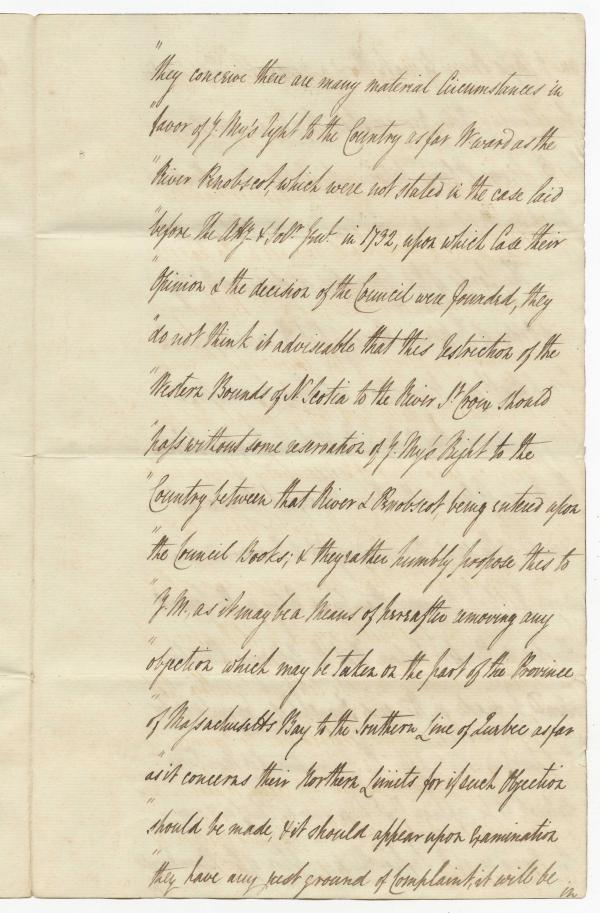 " they conceive there are many material Circumstances in
" favor of Y. My's right to the Country as far Wward as the
" River Penobscot, which were not stated in the case laid
" before the Atty. & Solr. Genl. in 1732, upon which Case their
" Opinion & the decision of the Council were founded, they
" do not think it adviseable that this restriction of the
" Western Bounds of N. Scotia to the River St. Croix should
" pass without some reservation of Y. My's Right to the
" Country between that River & Penobscot, being entered upon
" the Council Books; & they rather humbly propose this to
" Y. M. as it may be a Means of hereafter removing any
" objection which may be taken on the part of the Province
" of Massachusetts Bay to the Southern Line of Quebec as far
" as it concerns their Northern Limits for if such Objection
" should be made, & it should appear upon Examination
" they have any just ground of Complaint, it will be
in